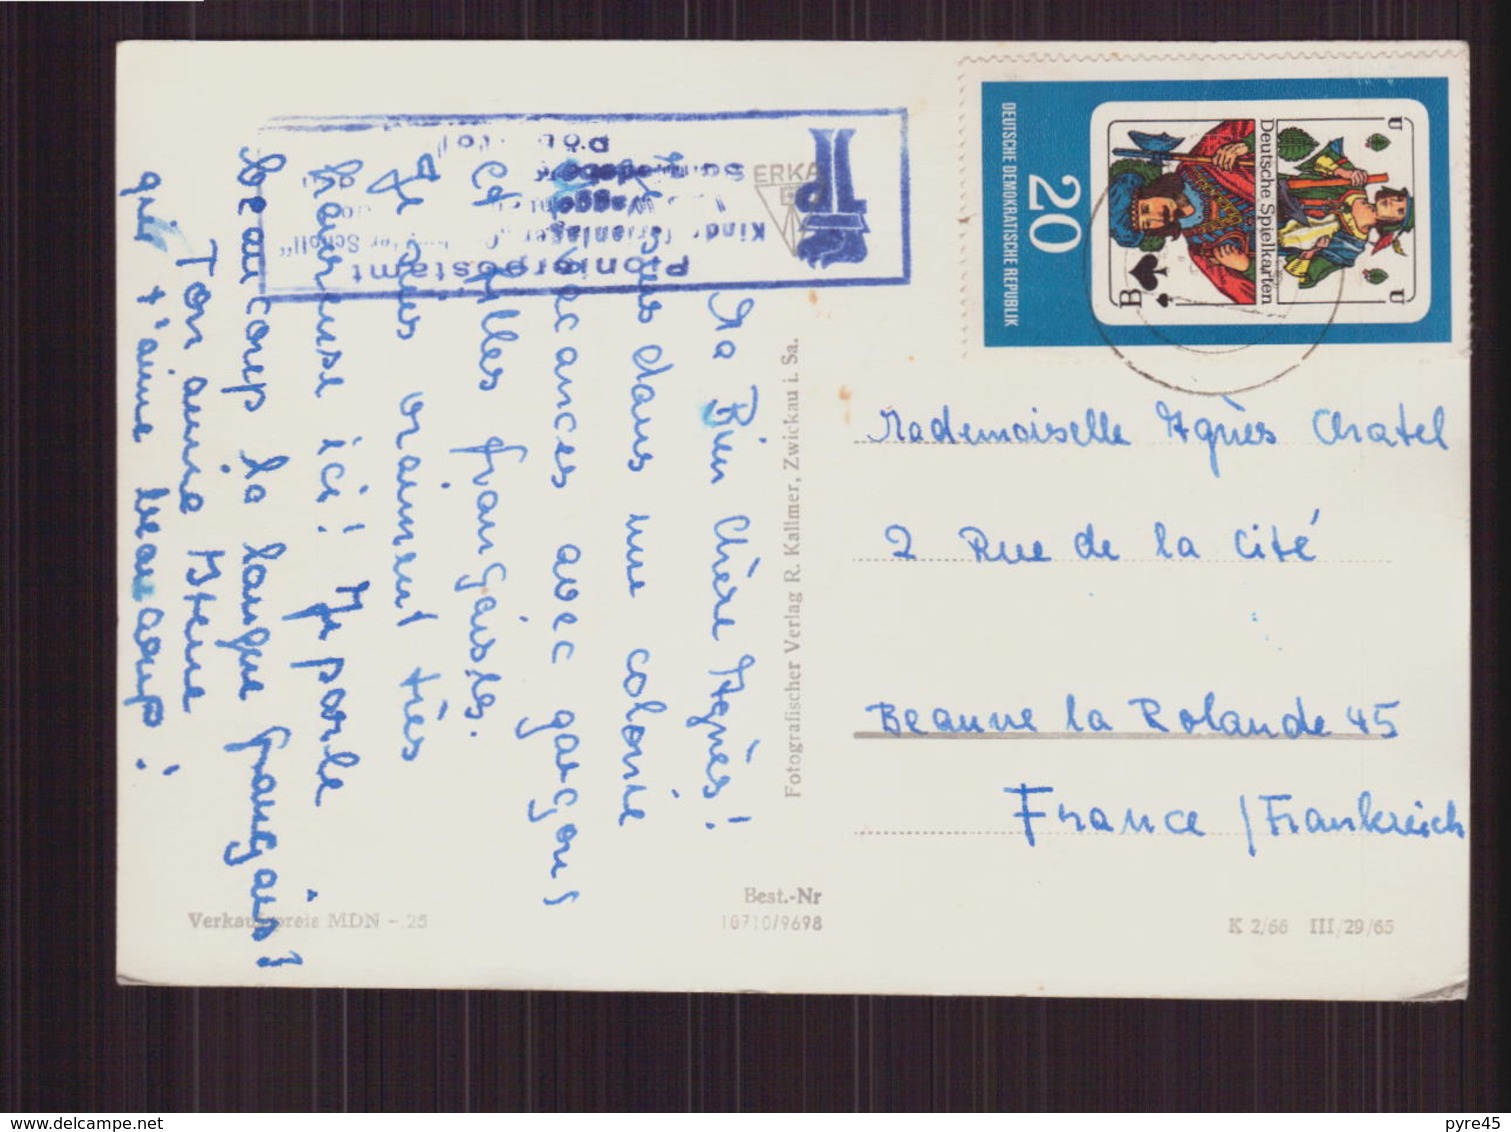 Ma Bien Chère Agnès!
Je suis dans une colonie
de vacances avec garçons
et filles françaises.
Je suis vraiment très
heureuse ici! Je parle
beaucoup la langue française!
Ton amie
qui t'aime beaucoup!
Pionierpostamt
ERKA
Fotografischer Verlag R. Kallmer, Zwickau i. Sa.
Best.-Nr
10710/9698
Verkaufspreis MDN -,25
DEUTSCHE DEMOKRATISCHE REPUBLIK
20
Deutsche Spielkarten
B
U
U
Mademoiselle Agnès Chatel
2 Rue de la Cité
Beaune la Rolande 45
France / Frankreich
K 2/66 III/29/65
delcampe.net
pyre45